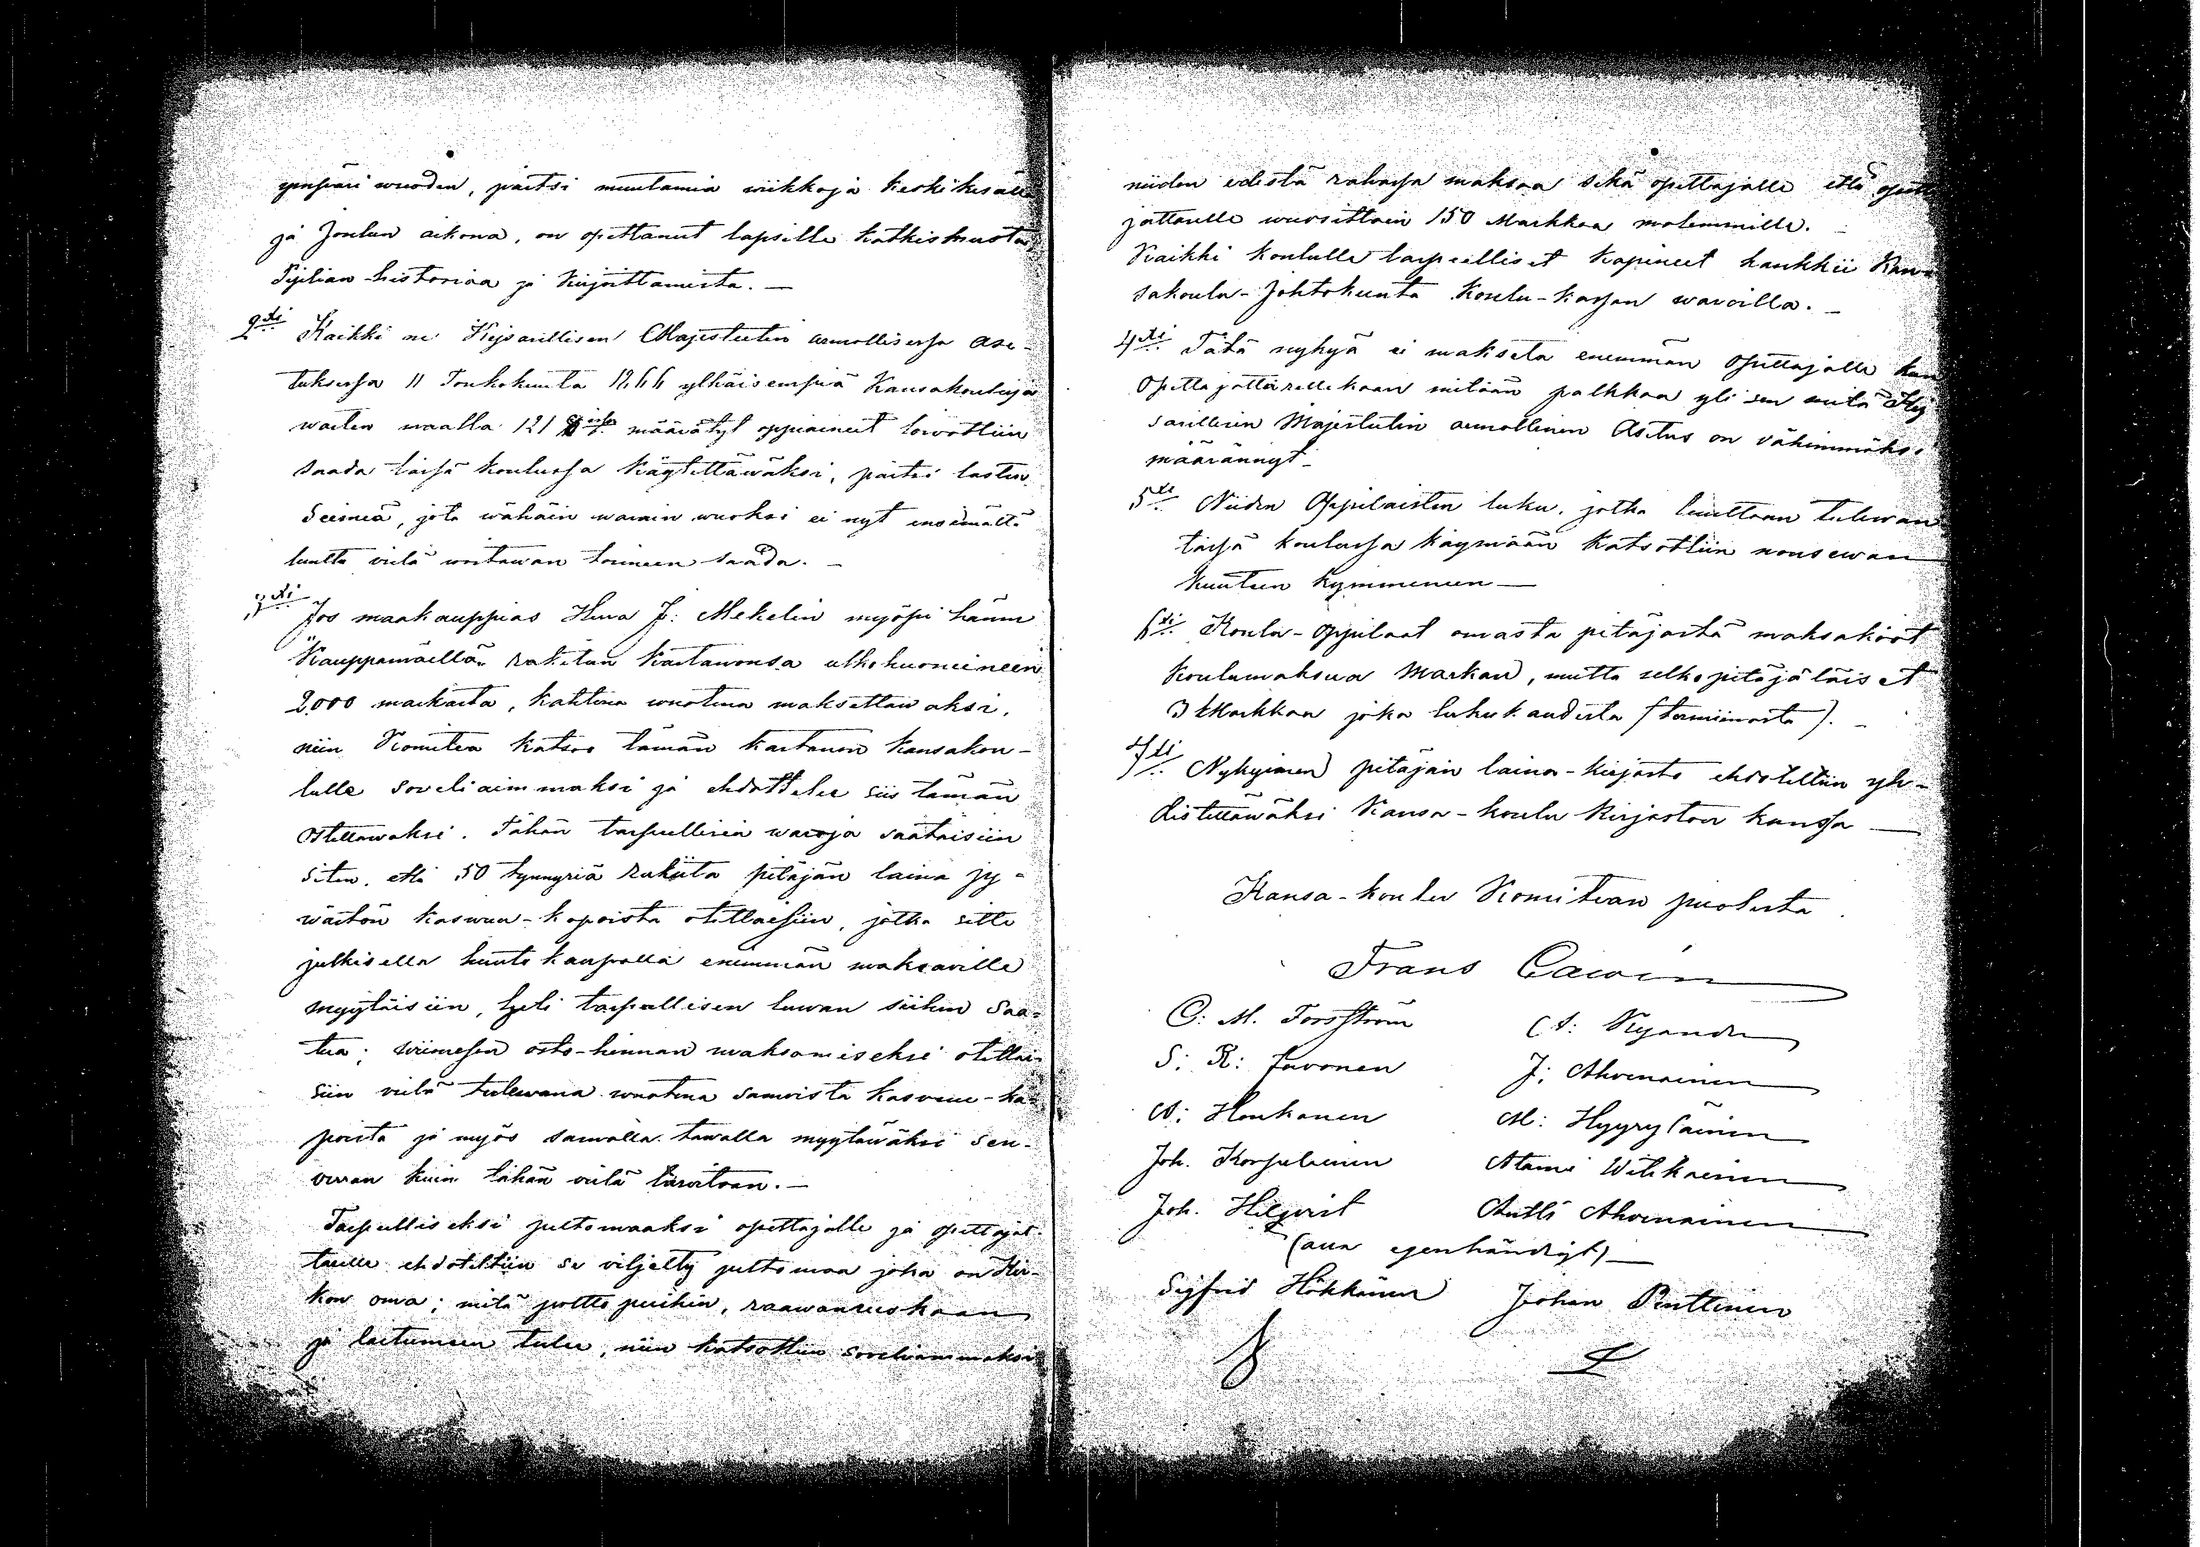 ympäri wuoden, paitsi muutamia wiikkoja keskikesällä
ja Joulun aikona, on opettanut lapsille katkismusta
Piplian-historiaa ja kirjoittamista. —
2ksi Kaikki ne Kejsarillisen Majesteetin armollisessa ase-
tuksessa 11 Toukokuuta 1866 ylhäisempiä Kansakouluja
warten maalla 121 § määrätyt oppiaineet toiwottiin
saada tässä koulussa käytettäwäksi, paitsi lasten
seimeä, jota wähäin warain wuoksi ei nyt
luultu vielä woitawan toimeen saada. —
3ksi Jos maakauppias Herra J: Mekelin myöpi hänen
"Kauppamäellä" raketun kartanonsa ulkohuoneineen
2,000 markasta, kahtena wuotena maksettawaksi,
niin Komitea katsoo tämän kartanon kansakou-
lulle soveliaimmaksi ja ehdottelee siis tämän
ostettawaksi. Tähän tarpeellisia waroja saataisiin
siten, että 50 tynnyriä rukiita pitäjän laina jy-
wästön kaswun-kapoista otettaisiin, jotka sitte
julkisella huutokaupalla enemmän maksaville
myytäisiin, heti tarpeellisen luwan siihen saa-
tua; wiimesen osto-hinnan maksamiseksi otettai-
siin vielä tulewana wuotena samoista kasvun-ka-
poista ja myös samalla tawalla myytäwäksi sen-
verran kuin tähän vielä tarvitaan. —
Tarpeelliseksi peltomaaksi opettajalle ja opettajat-
tarelle ehdotettiin se viljelty peltomaa joka on Kir-
kon oma; mitä poltto puihin, raawaanruokaan
ja laitumeen tulee, niin katsottiin soveliammaksi
niiden edestä rahassa maksaa sekä opettajalle että opetta
jattarelle wuosittain 150 Markkaa molemmille. —
Kaikki koululle tarpeelliset kapineet hankkii Kan-
sakoulu-Johtokunta koulu-kassan waroilla. —
4ksi Tätä nykyä ei makseta enemmän opettajalle kun
Opettajattarellekaan mitään palkkaa yli sen mitä Kej-
sarillisen Majesteetin armollinen Asetus on vähimmäksi
määrännyt —
5ksi Niiden Oppilaisten luku, jotka luultaan tulewan
tässä koulussa käymään katsottiin nousewan
kuuteen kymmeneen —
6ksi Koulu-oppilaat omasta pitäjästä maksakoot
koulumaksua Markan, mutta ulkopitäjäläiset
3 Markkaa joka lukukaudesta (termiinistä). —
7ksi Nykyinen pitäjän laina-kirjasto ehdotettiin yh-
distettäwäksi Kansa-koulu Kirjaston kanssa —
Kansa-koulu Komitean puolesta.
Frans Cawén
C: M. Forsström A: Kyander
S: R: Savonen J: Ahvenainen
A: Honkanen M: Hyyryläinen
Joh. Korholainen Atami Witikainen
Joh. Hilqvist Antti Ahvenainen
(alla egenhändigt) —
Sigfrid Hökkänen Johan Penttinen